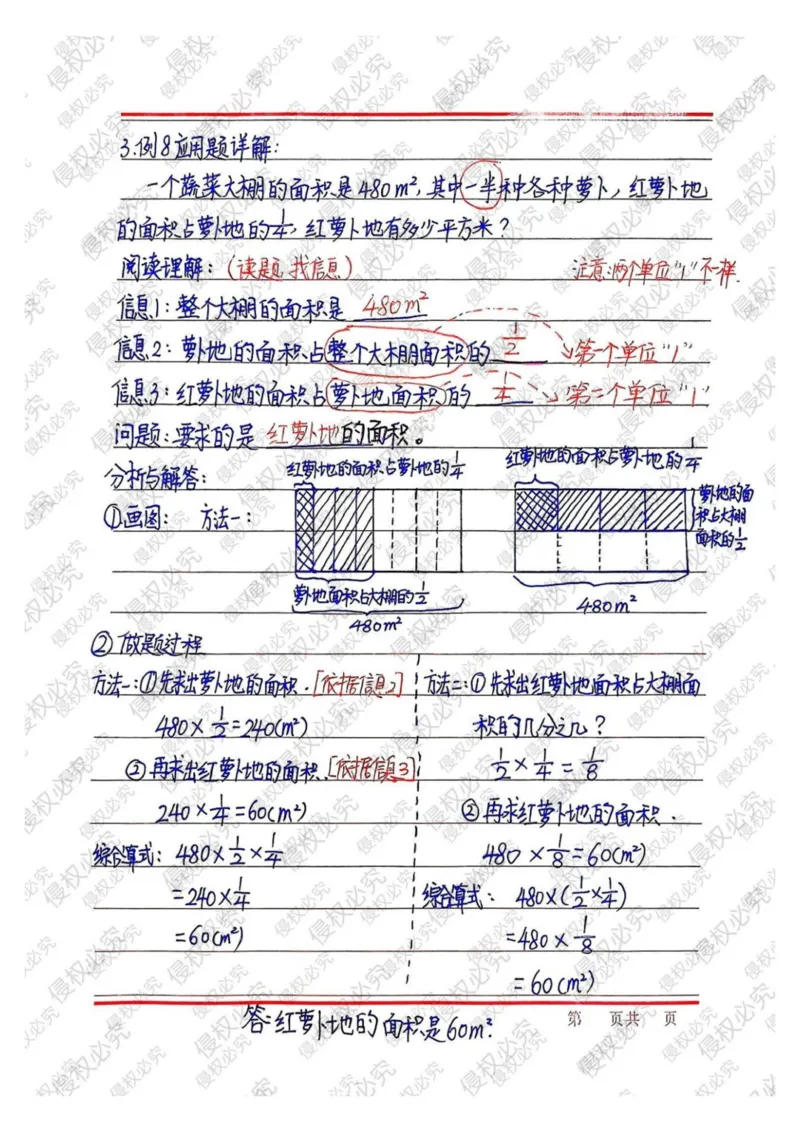 3.例8应用题详解：
一个蔬菜大棚的面积是480m²，其中一半种各种萝卜，红萝卜地
的面积占萝卜地的1/4，红萝卜地有多少平方米？
阅读理解：（读题 找信息） 注意：两个单位"1"不一样.
信息1：整个大棚的面积是 480m²
信息2：萝卜地的面积占整个大棚面积的 1/2 第一个单位"1"
信息3：红萝卜地的面积占萝卜地面积的 1/4 第二个单位"1"
问题：要求的是 红萝卜地的面积。
分析与解答：
红萝卜地的面积占萝卜地的1/4
红萝卜地的面积占萝卜地的1/4
①画图： 方法一：
萝卜地的面
积占大棚
面积的1/2
萝卜地面积占大棚的1/2
480m²
480m²
②做题过程
方法一：①先求出萝卜地的面积.[依据信息2]
480×1/2=240(m²)
②再求出红萝卜地的面积.[依据信息3]
240×1/4=60(m²)
综合算式：480×1/2×1/4
=240×1/4
=60(m²)
方法二：①先求出红萝卜地面积占大棚面
积的几分之几？
1/2×1/4=1/8
②再求红萝卜地的面积.
480×1/8=60(m²)
综合算式：480×(1/2×1/4)
=480×1/8
=60(m²)
答：红萝卜地的面积是60m².
第 页共 页
侵权必究